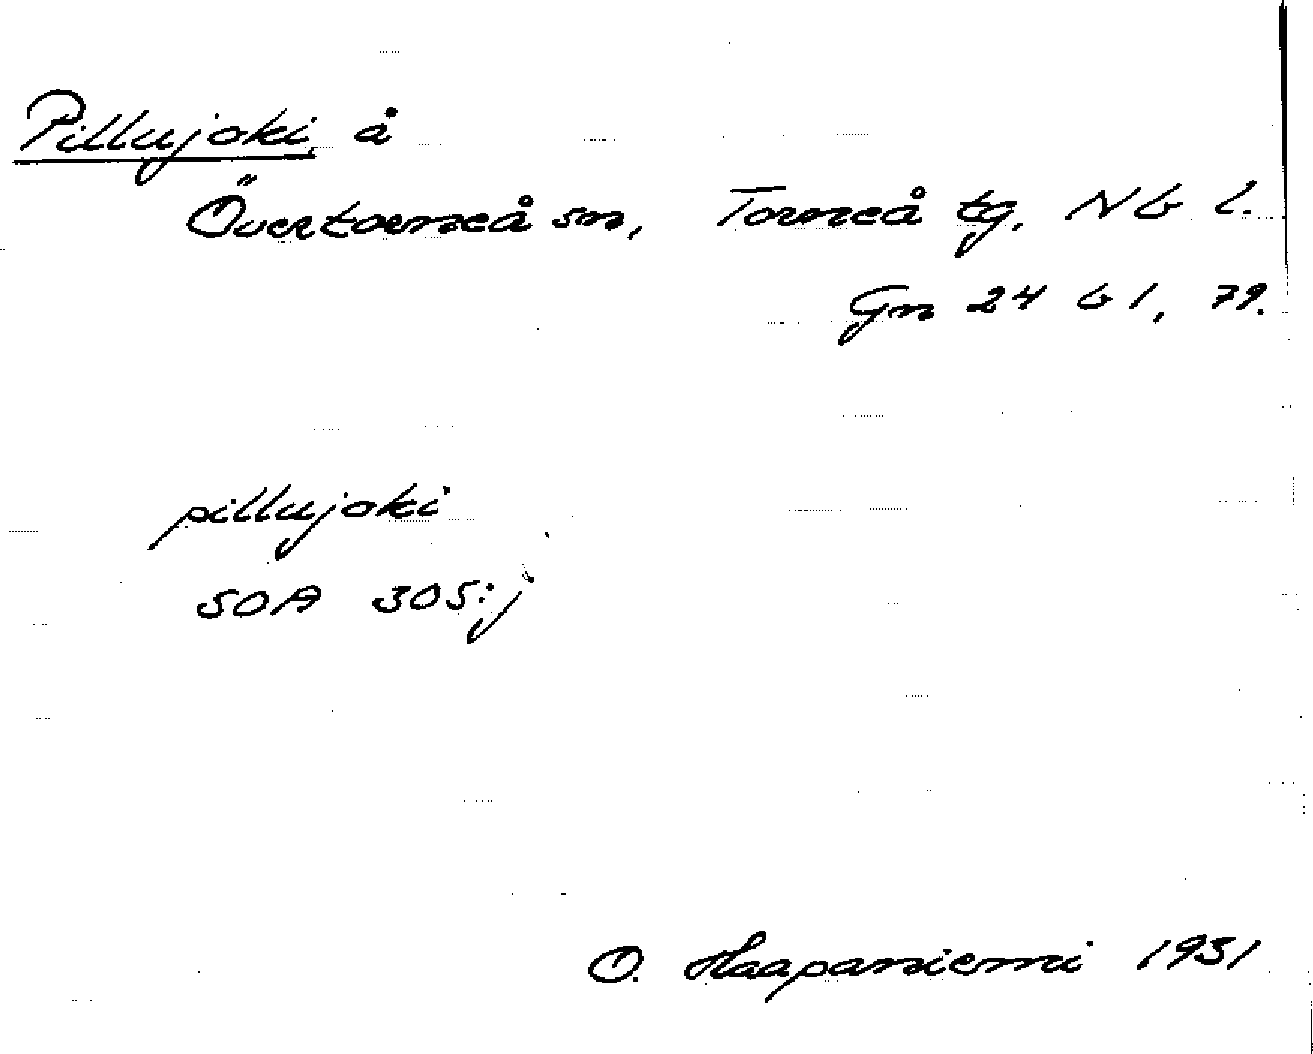 Pillujoki, å
Övertorneå sn, Torneå tg. Nb l.
Gn 24 b 1, 79.
pillujoki
SOA 305:j
O. Haapaniemi 1931